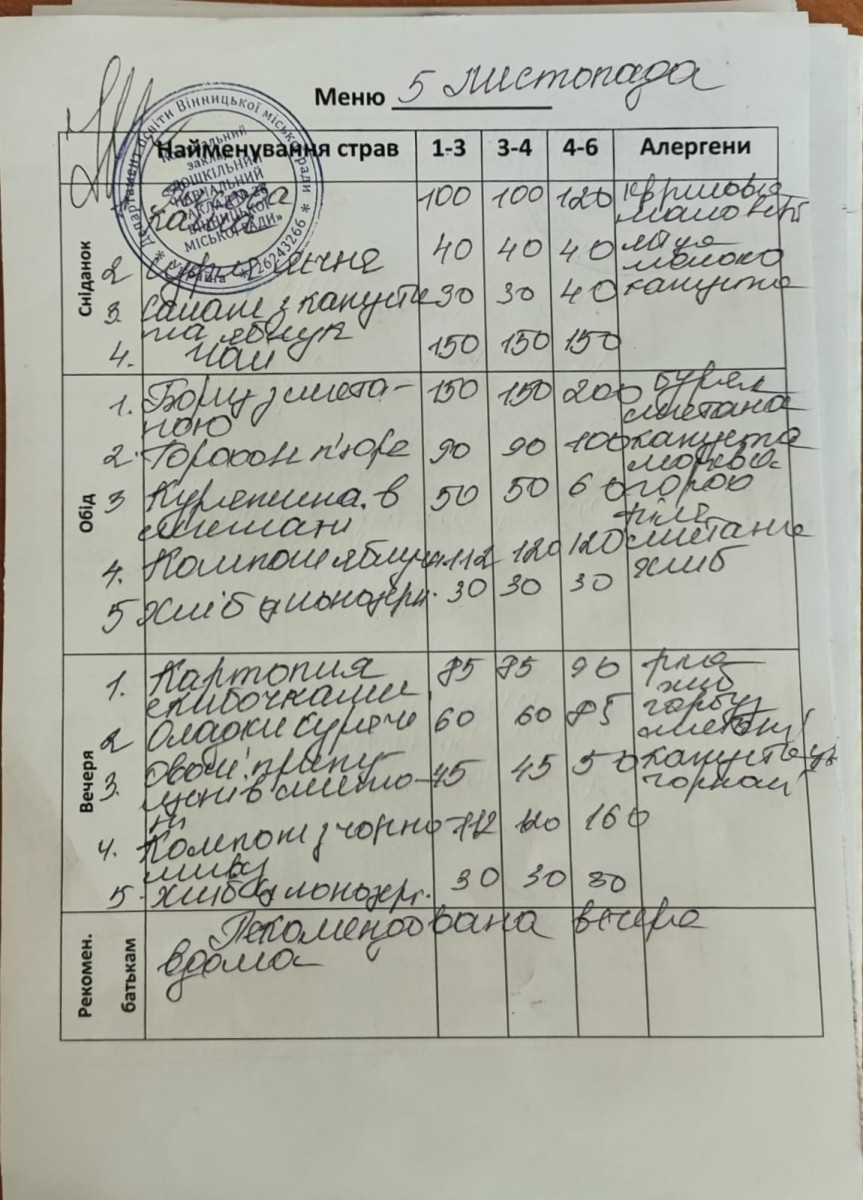 Меню 5 Листопада
Найменування страв 1-3 3-4 4-6 Алергени
Департамент освіти Вінницької міської ради
заклад
ДОШКІЛЬНИЙ
НАВЧАЛЬНИЙ
ЗАКЛАД № 25
ВІННИЦЬКОЇ
МІСЬКОЇ РАДИ»
Україна * 26243266 *
Сніданок
100 100 120
каша
2 40 40 40 яйця
молоко
3. Салат з капусти 30 30 40 капуста
та яблук
4. Чай 150 150 150
Обід
1. Борщ з смета- 150 150 200 буряк
ною сметана
2. Горохов п'юре 90 90 100 капуста
морква
3 Курятина в 50 50 60 горох
сметані філе
4. Компот яблучн 112 120 120 сметана
5 Хліб цільнозерн. 30 30 30 хліб
Вечеря
1. Картопля 85 85 90 риба
скибочками хліб
2 Оладки курячі 60 60 85 гарбуз
сметана
3. Овочі припу- 45 45 50 капуста цв
щені в смета-
ні
4. Компот з чорно- 112 120 160
сливу
5. Хліб цільнозерн. 30 30 30
Рекомен.
батькам
Рекомендована вечеря
вдома